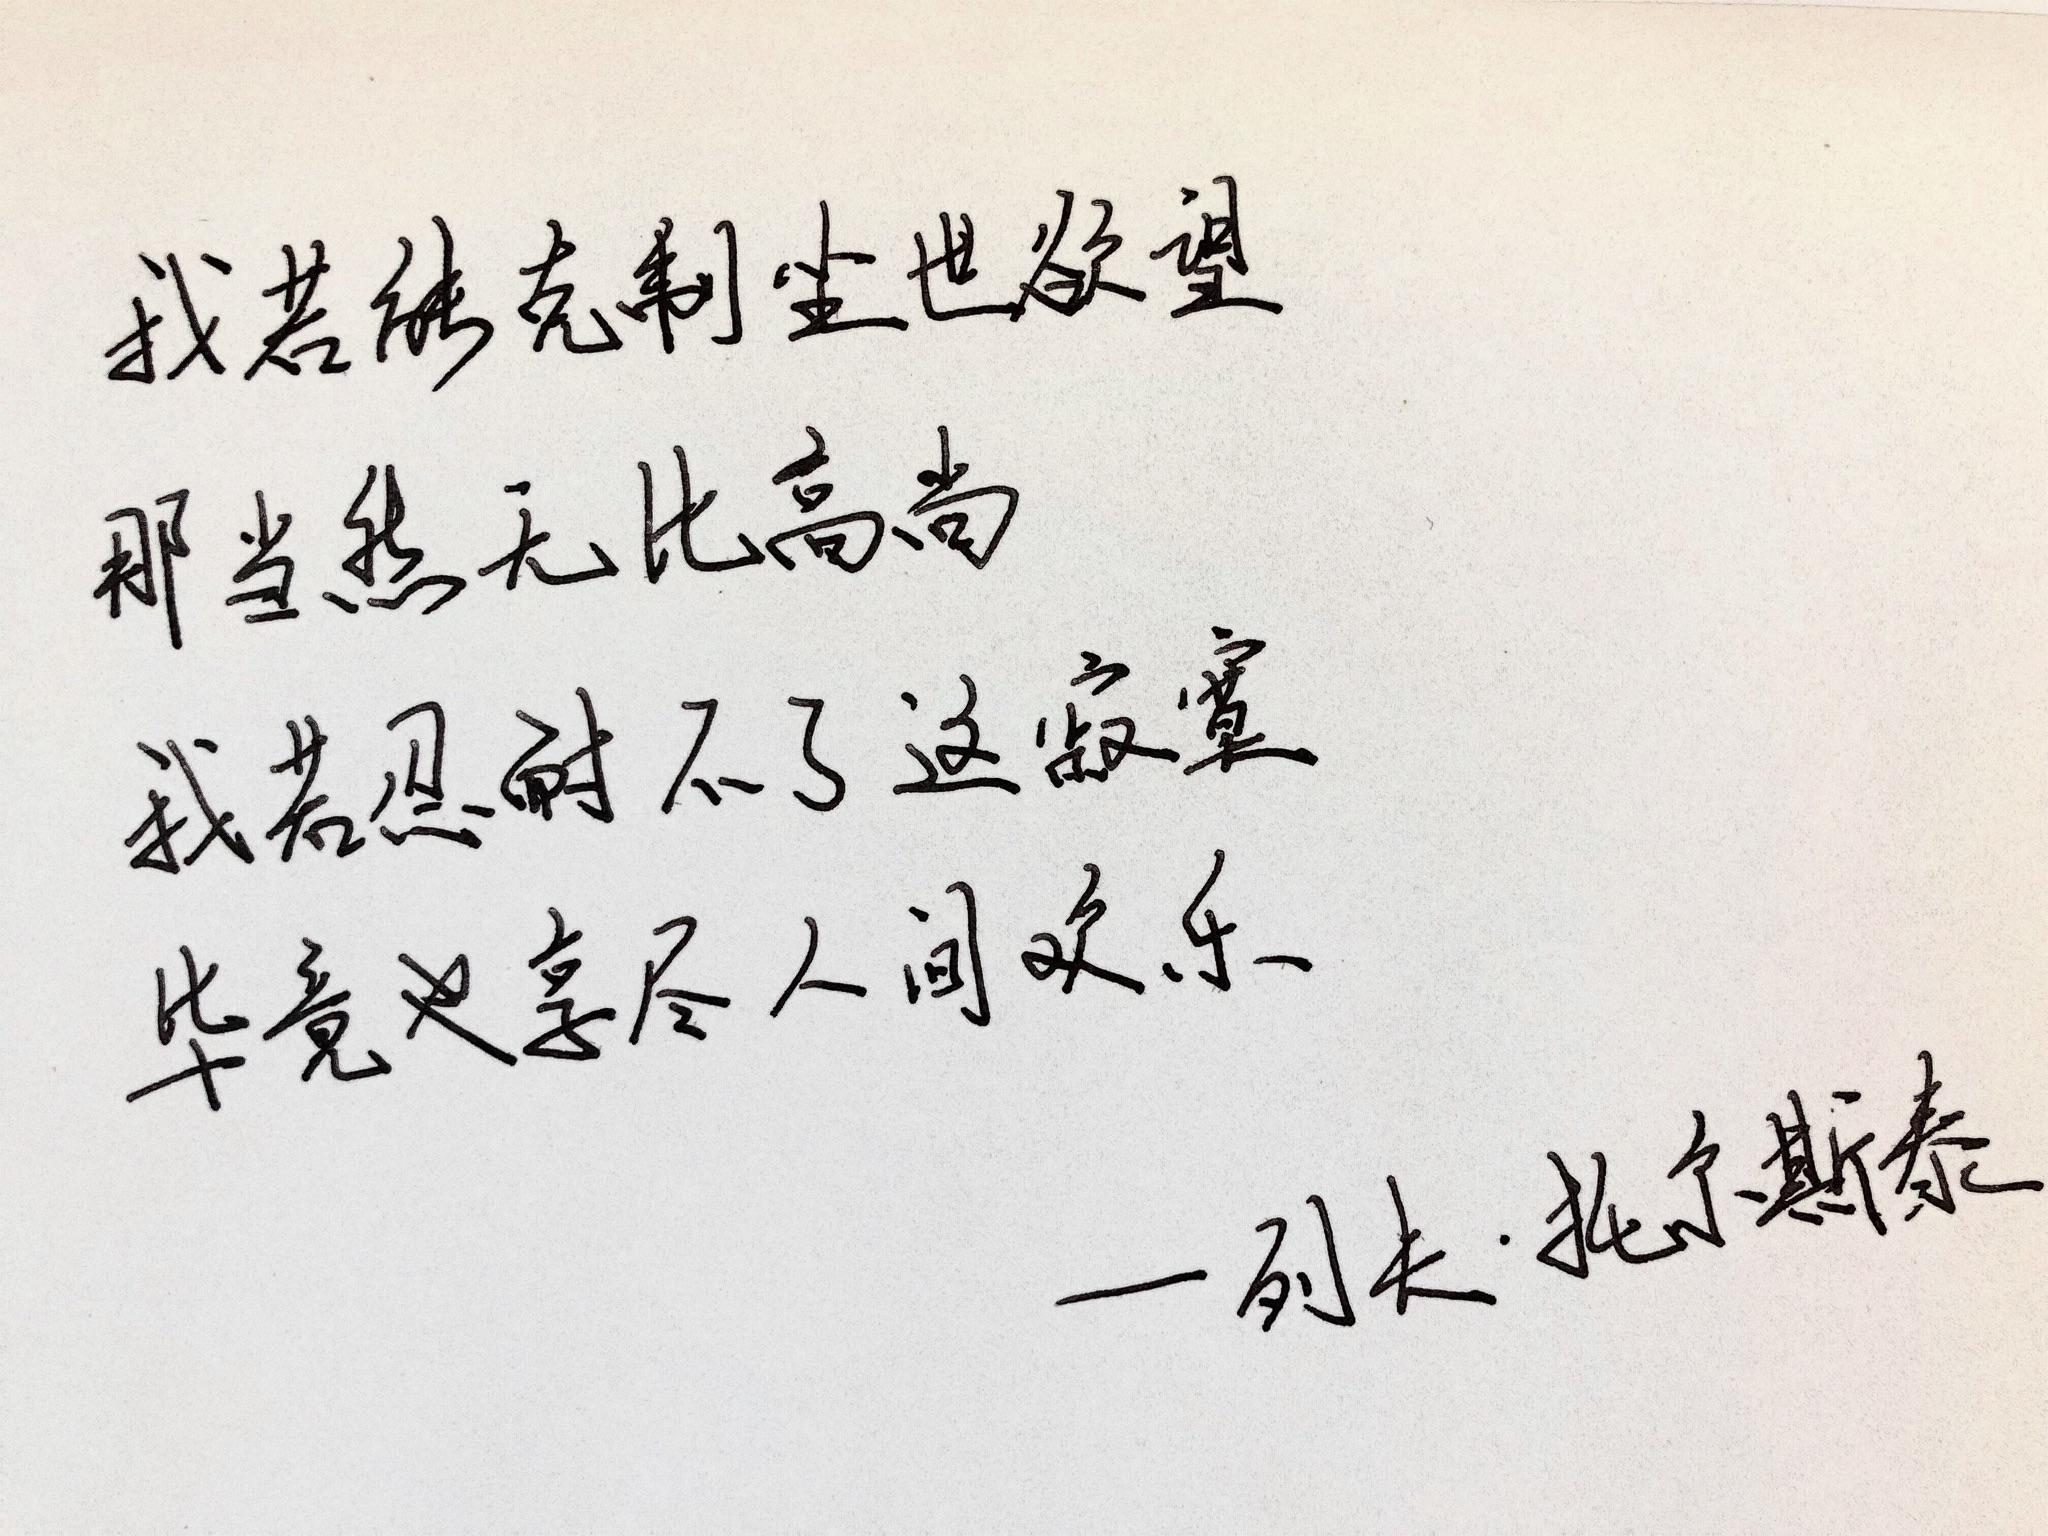 我若能克制尘世欲望
那当然无比高尚
我若忍耐不了这寂寞
毕竟也享尽人间欢乐
—列夫·托尔斯泰